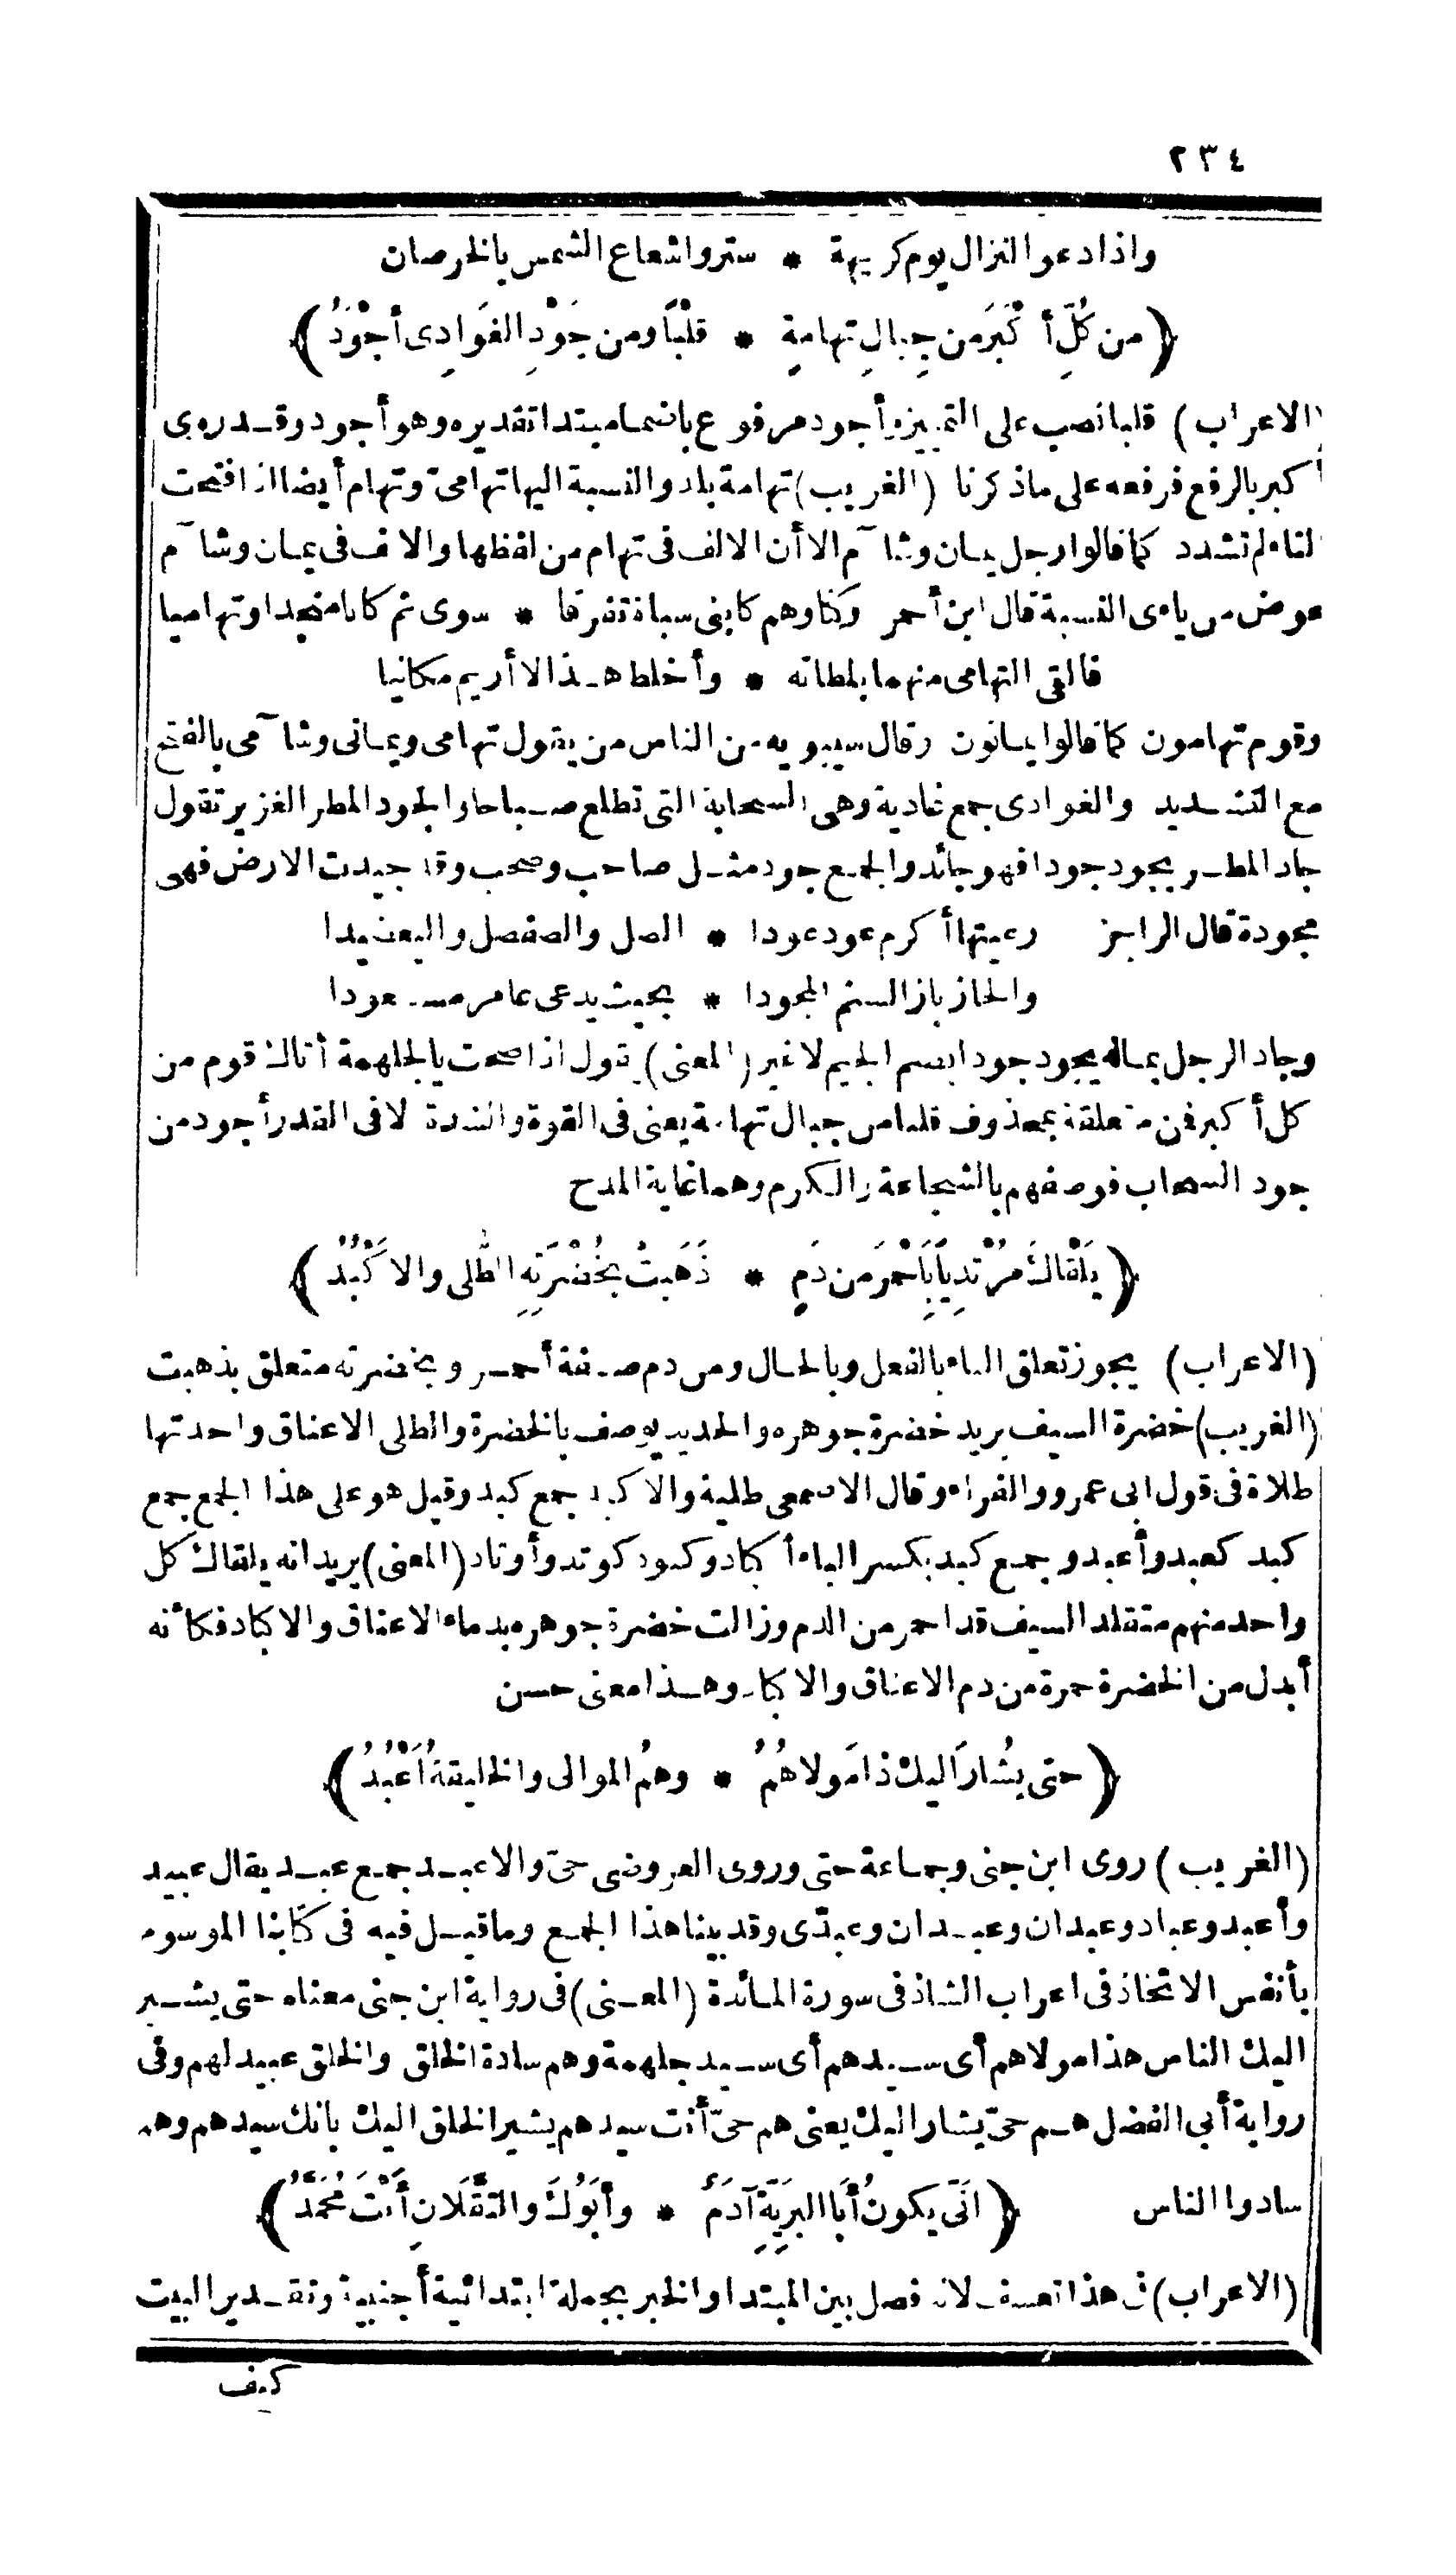 ٢٣٤
واذا دعوا لنزال يوم كريهة * ستروا شعاع الشمس بالخرصان
(من كُلِّ أَكْبَرَ من جِبالِ تهامةٍ * قلْبًا ومن جَوْدِ الغَوادِى أَجْوَدُ)
(الاعراب) قلبا نصب على التمييز وأجود مرفوع باضمار مبتدا تقديره وهو أجود وقد روى
أكبر بالرفع فرفعه على ما ذكرنا (الغريب) تهامة بلد والنسبة اليها تهامىّ وتهام أيضا اذا فتحت
التاء لم تشدد كما قالوا رجل يمان وشآم الا أن الالف فى تهام من لفظها والالف فى يمان وشآم
عوض من ياءى النسبة قال ابن أحمر وكنا وهم كابنى سبات تفرقا * سوى ثم كانا منجدا وتهاميا
فالقى التهامى منهما بلطاته * وأخلط هذا لا أريم مكانيا
وقوم تهامون كما قالوا يمانون وقال سيبويه من الناس من يقول تهامى ويمانى وشآمى بالفتح
مع التشديد والغوادى جمع غادية وهى السحابة التى تطلع صباحا والجود المطر الغزير تقول
جاد المطر يجود جودا فهو جائد والجمع جود مثل صاحب وصحب وقد جيدت الارض فهى
مجودة قال الراجز رعيتها أكرم عود عودا * الصل والصفصل واليعضيدا
والخاز باز السنم المجودا * بحيث يدعى عامر مسعودا
وجاد الرجل بماله يجود جودا بضم الجيم لا غير (المعنى) يقول اذا صحت يا لجلهمة أتاك قوم من
كل أكبر فمن متعلقة بمحذوف قلبا من جبال تهامة يعنى فى القوة والشدة لا فى القدر أجود من
جود السحاب فوصفهم بالشجاعة والكرم وهما غاية المدح
(يَلْقاكَ مُرْتَدِيًا بِأَحْمَرَ من دَمٍ * ذَهَبتْ بخُضْرَتِهِ الطُّلى والاَكْبُدُ)
(الاعراب) يجوز تعلق الباء بالفعل وبالحال ومن دم صفة أحمر وبخضرته متعلق بذهبت
(الغريب) خضرة السيف يريد خضرة جوهره والحديد يوصف بالخضرة والطلى الاعناق واحدتها
طلاة فى قول ابى عمرو والفراء وقال الاصمعى طلية والاكبد جمع كبد وقيل هو على هذا الجمع جمع
كبد كعبد وأعبد وجمع كبد بكسر الباء أكباد وكبود كوتد وأوتاد (المعنى) يريد انه يلقاك كل
واحد منهم متقلد السيف قد احمر من الدم وزالت خضرة جوهره بدماء الاعناق والاكباد فكأنه
أبدل من الخضرة حمرة من دم الاعناق والاكباد وهذا معنى حسن
(حتى يُشارَ اليك ذا مَولاهُمُ * وهمُ الموالى والخليقةُ أَعْبُدُ)
(الغريب) روى ابن جنى وجماعة حتى وروى العروضى حىّ والاعبد جمع عبد يقال عبيد
وأعبد وعباد وعبدان وعبدان وعبدّى وقد بينا هذا الجمع وما قيل فيه فى كتابنا الموسوم
بأنفس الاتخاذ فى اعراب الشاذ فى سورة المائدة (المعنى) فى رواية ابن جنى معناه حتى يشير
اليك الناس هذا مولاهم أى سيدهم أى سيد جلهمة وهم سادة الخلق والخلق عبيد لهم وفى
رواية أبى الفضل هم حىّ يشار اليك يعنى هم حىّ أنت سيدهم يشير الخلق اليك بانك سيدهم وهم
سادوا الناس (انَّى يكونُ أَبَا البَرِيَّةِ آدَمُ * وأَبُوكَ والثَّقَلَانِ أَنْتَ مُحَمَّدُ)
(الاعراب) فى هذا تعسف لانه فصل بين المبتدا والخبر بجملة ابتدائية أجنبية وتقدير البيت
كيف